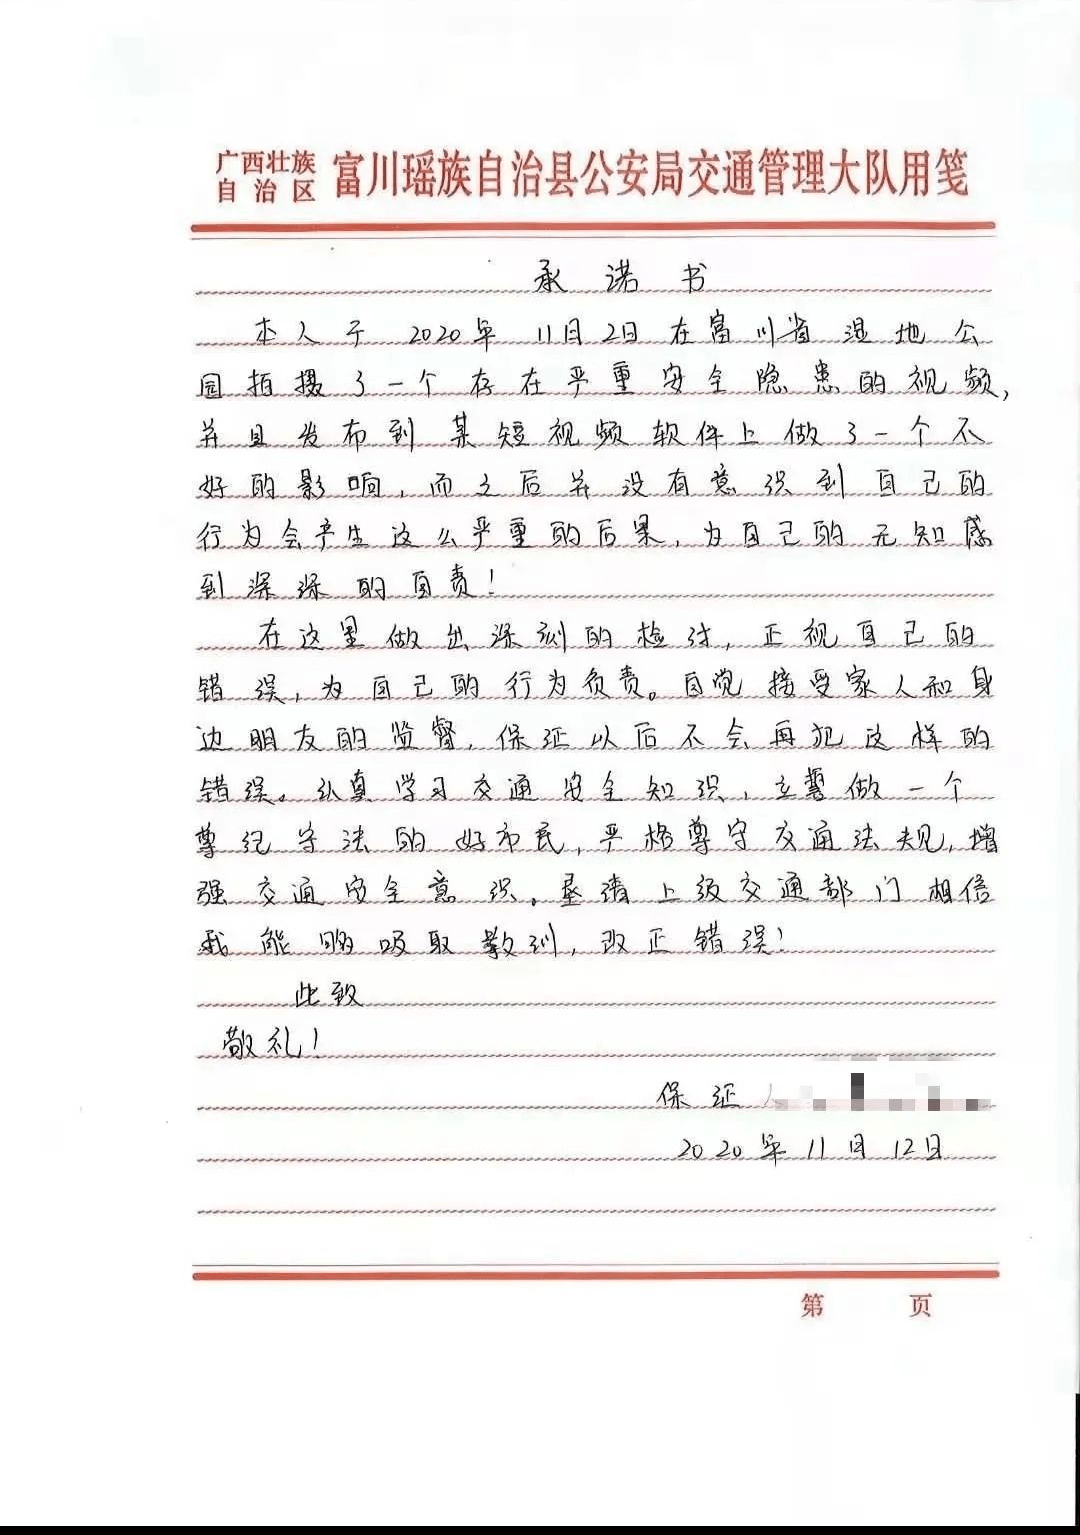 广西壮族
自治区
富川瑶族自治县公安局交通管理大队用笺
承诺书
本人于2020年11月2日在富川省湿地公
园拍摄了一个存在严重安全隐患的视频,
并且发布到某短视频软件上做了一个不
好的影响,而之后并没有意识到自己的
行为会产生这么严重的后果,为自己的无知感
到深深的自责!
在这里做出深刻的检讨,正视自己的
错误,为自己的行为负责。自觉接受家人和身
边朋友的监督,保证以后不会再犯这样的
错误。认真学习交通安全知识,立誓做一个
尊纪守法的好市民,严格尊守交通法规,增
强交通安全意识。恳请上级交通部门相信
我能够吸取教训,改正错误!
此致
敬礼!
保证人
2020年11月12日
第 页